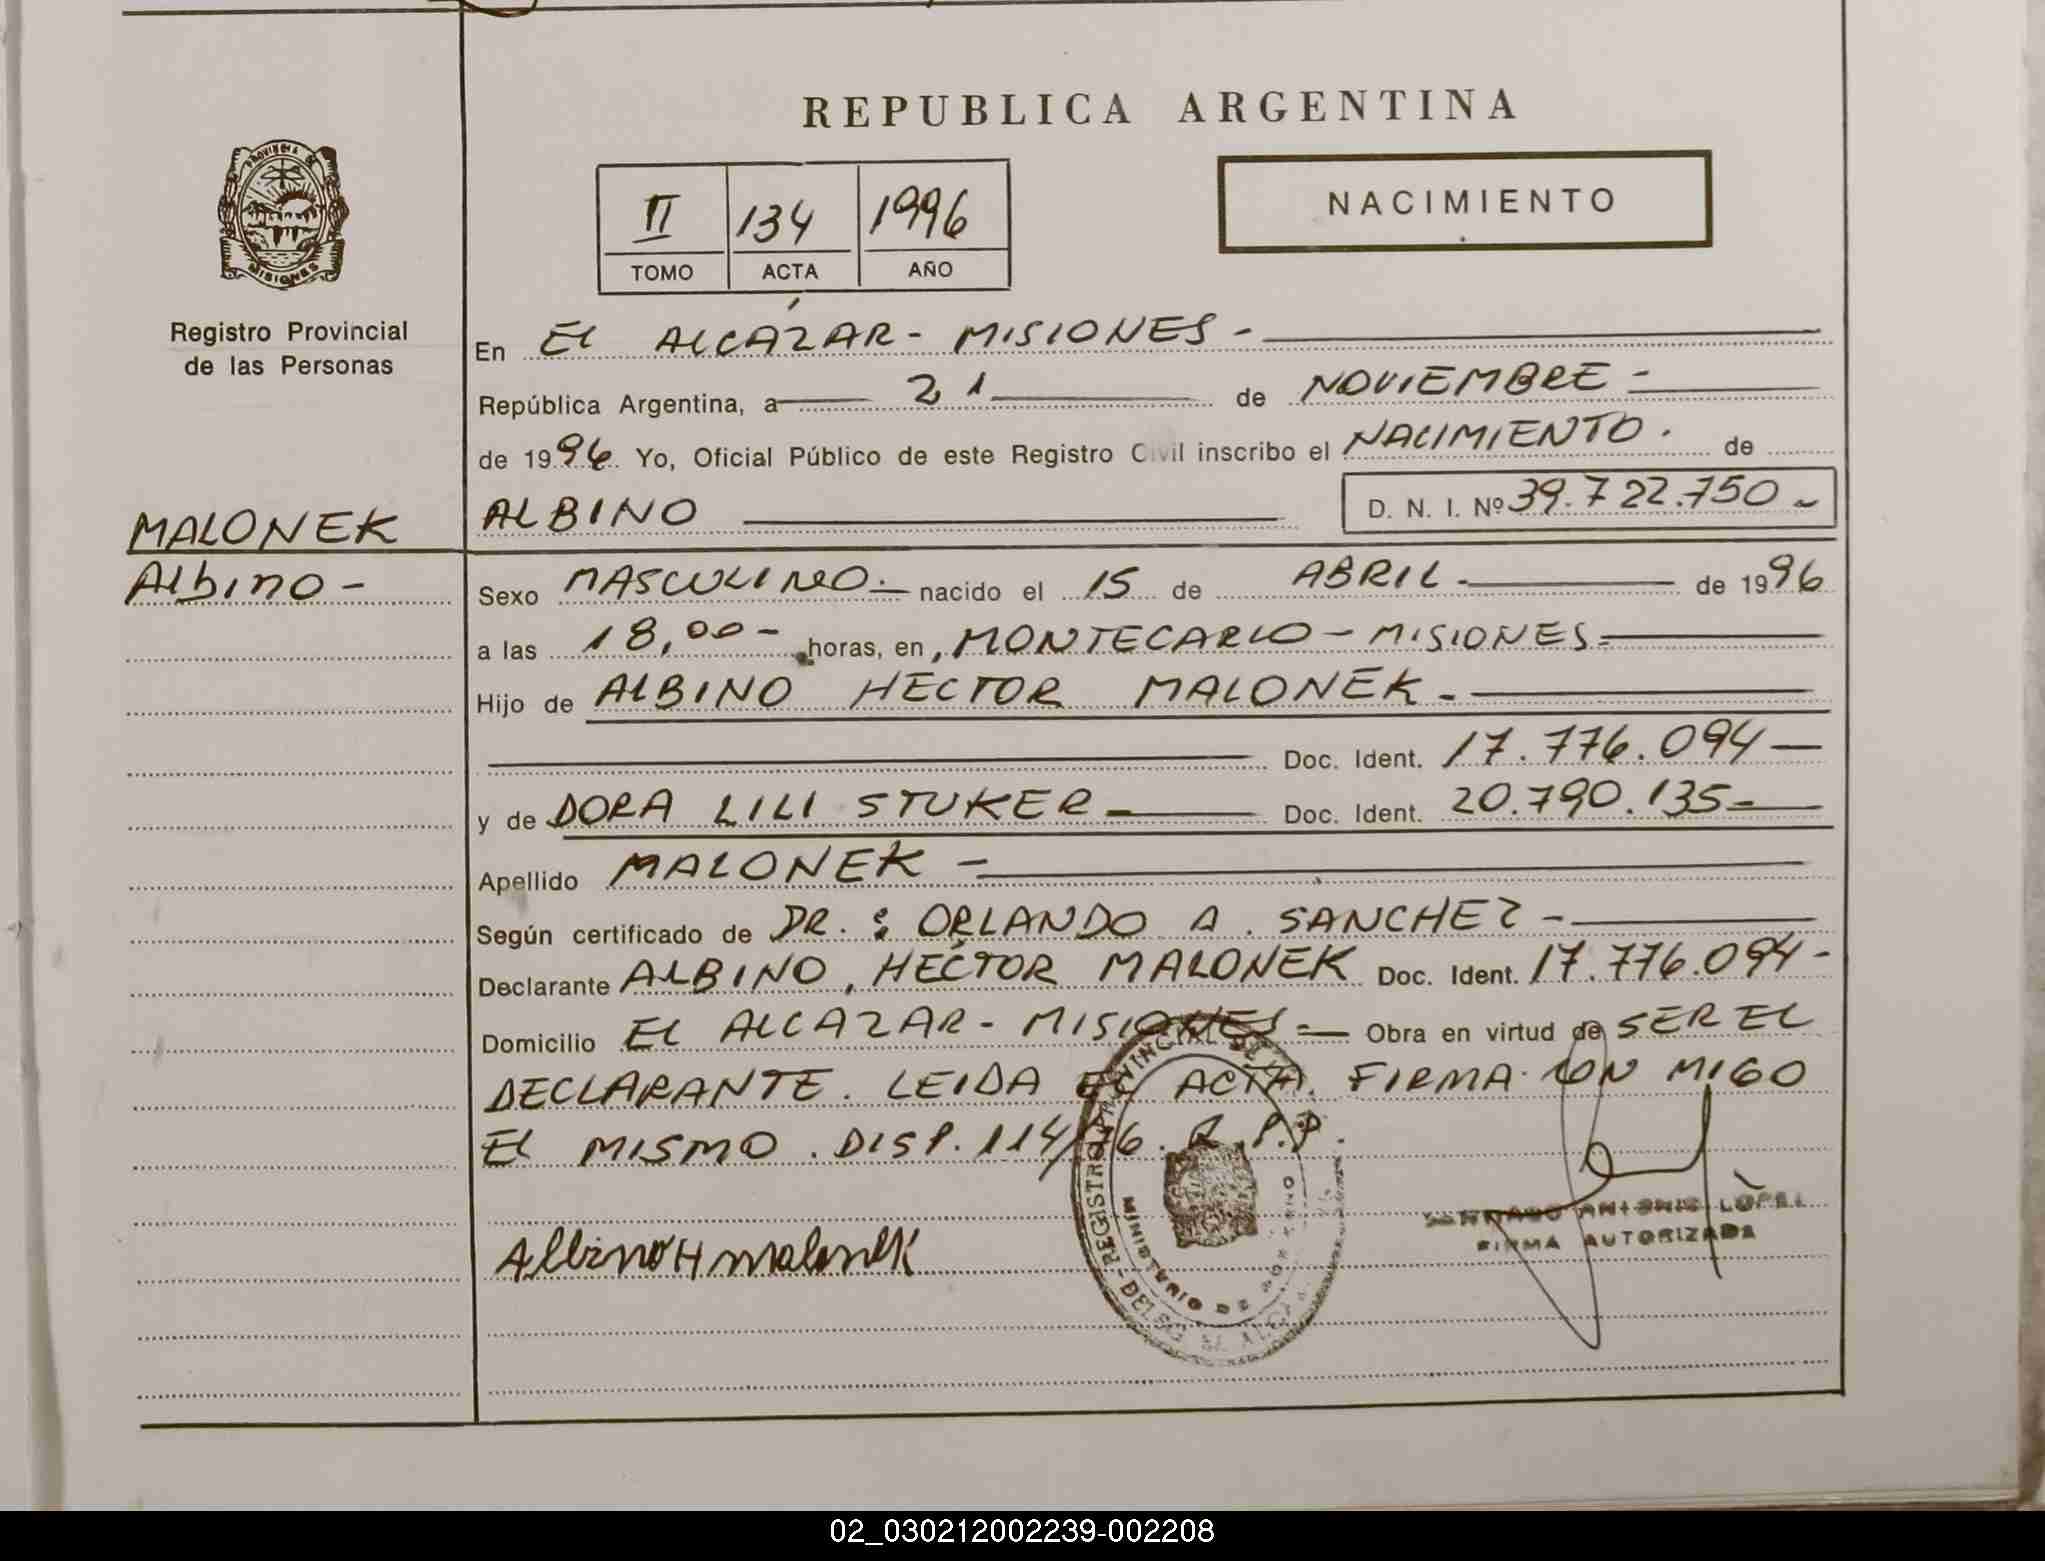 REPUBLICA ARGENTINA
PROVINCIA DE
MISIONES
Registro Provincial
de las Personas
II 134 1996
TOMO ACTA AÑO
NACIMIENTO
En EL ALCÁZAR - MISIONES -
República Argentina, a 21 de NOVIEMBRE -
de 1996. Yo, Oficial Público de este Registro Civil inscribo el NACIMIENTO. de
ALBINO D. N. I. Nº 39.722.750 -
MALONEK
Albino -
Sexo MASCULINO.- nacido el 15 de ABRIL - de 1996
a las 18,00 - horas, en, MONTECARLO - MISIONES -
Hijo de ALBINO HECTOR MALONEK -
Doc. Ident. 17.776.094 -
y de DORA LILI STUKER - Doc. Ident. 20.790.135 -
Apellido MALONEK -
Según certificado de DR. : ORLANDO A. SANCHEZ -
Declarante ALBINO, HÉCTOR MALONEK Doc. Ident. 17.776.094 -
Domicilio EL ALCAZAR - MISIONES - Obra en virtud de SER EL
DECLARANTE. LEIDA EL ACTA. FIRMA CON MIGO
EL MISMO. DISP. 114/76. R.P.P.
Albino H malonek
REGISTRO PROVINCIAL DE
MINISTERIO DE GOBIERNO
SANTIAGO ANTONIO LÓPEZ
FIRMA AUTORIZADA
02_030212002239-002208